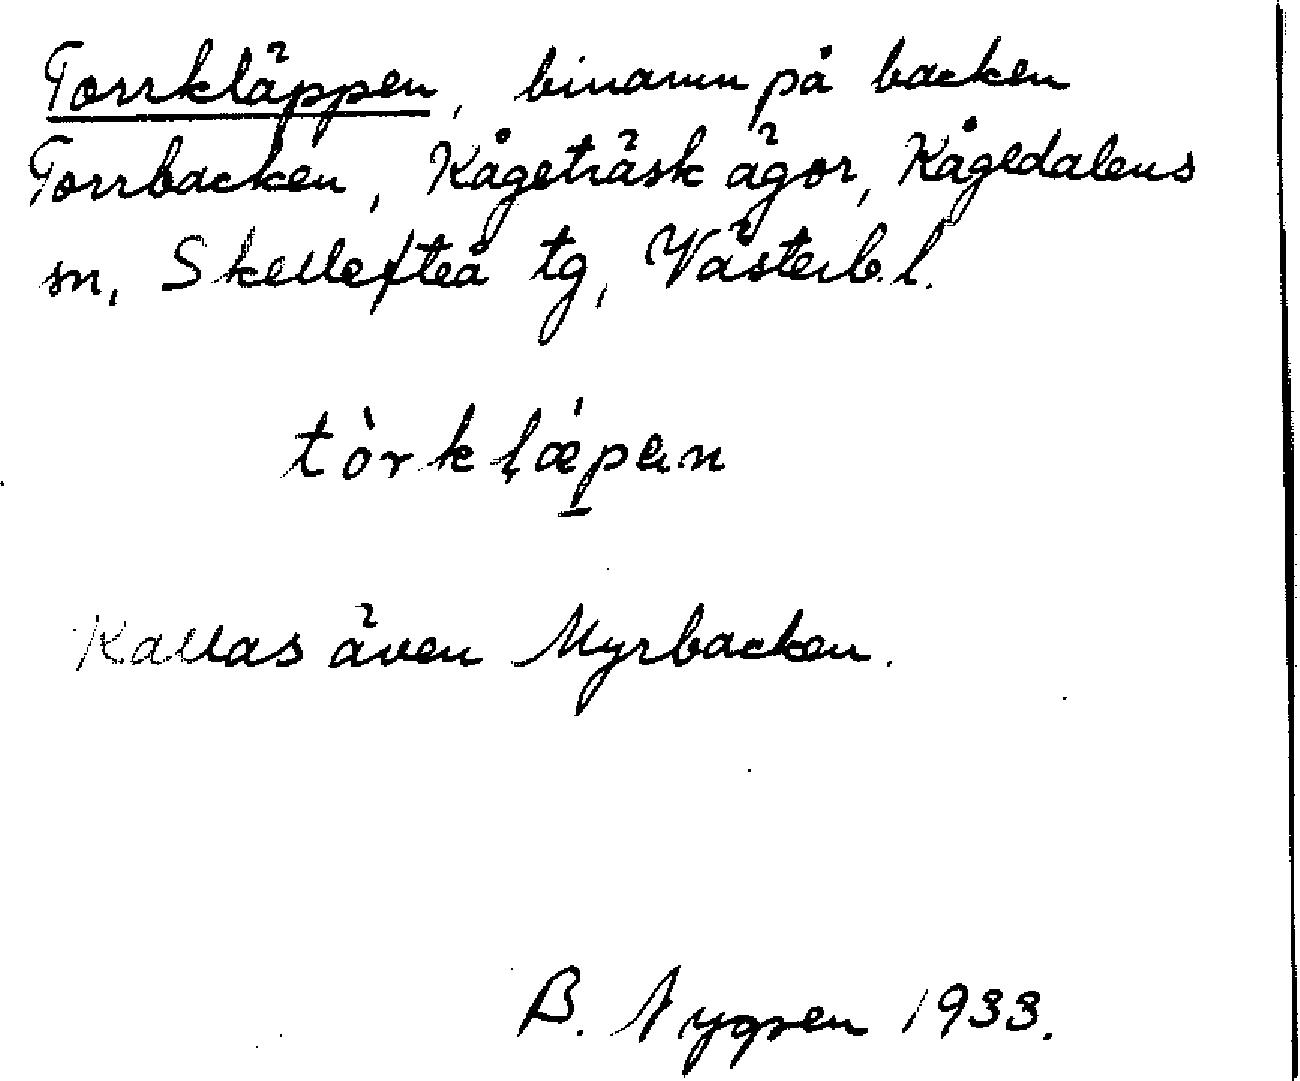 Torrkläppen, binamn på backen
Torrbacken, Kågeträsk ägor, Kågedalens
sn, Skellefteå tg, Västerb. l.
tòrkḷǽp̲ən
Kallas även Myrbacken.
B. Nygren 1933.